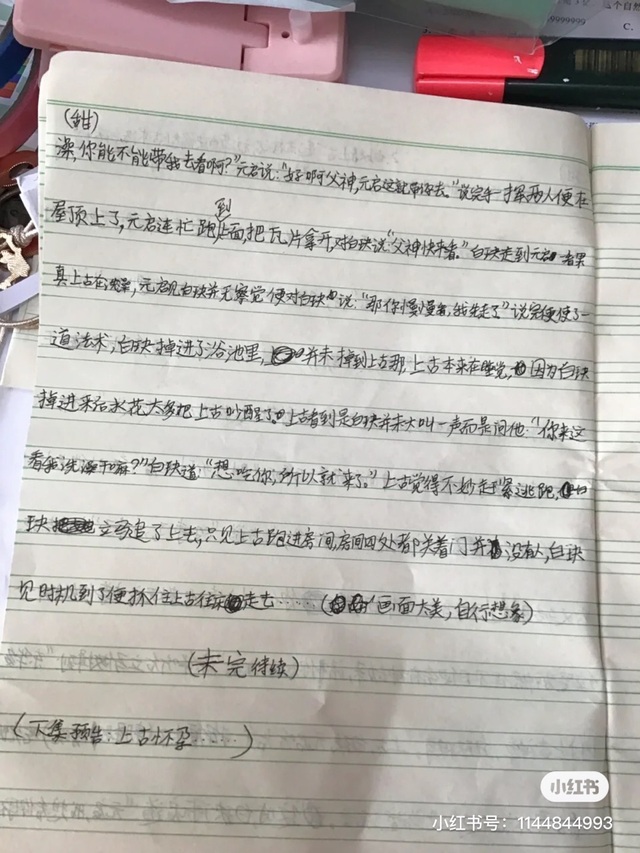 C.
(甜)
澡,你能不能带我去看啊?"元启说:"好啊父神,元启这就带你去。"说完手一挥两人便在
屋顶上了,元启连忙跑到上面,把瓦片拿开,对白玦说"父神快来看。"白玦走到元启 看果
真上古在洗澡,元启见白玦并无察觉便对白玦说:"那你慢慢看,我先走了"说完便使了一
道法术,白玦掉进了浴池里,并未掉到上古那,上古本来在睡觉,因为白玦
掉进来后水花太多把上古叫醒了。上古看到是白玦并未大叫一声而是问他:"你来这
看我洗澡干嘛?"白玦道:"想吃你,所以就来了。"上古觉得不妙赶紧逃跑,白
玦立马追了上去,只见上古跑进房间,房间四处都关着门并没有人,白玦
见时机到了便抓住上古往床走去……(画面太美,自行想象)
(未完待续)
(下集预告:上古怀孕……)
小红书
小红书号:1144844993